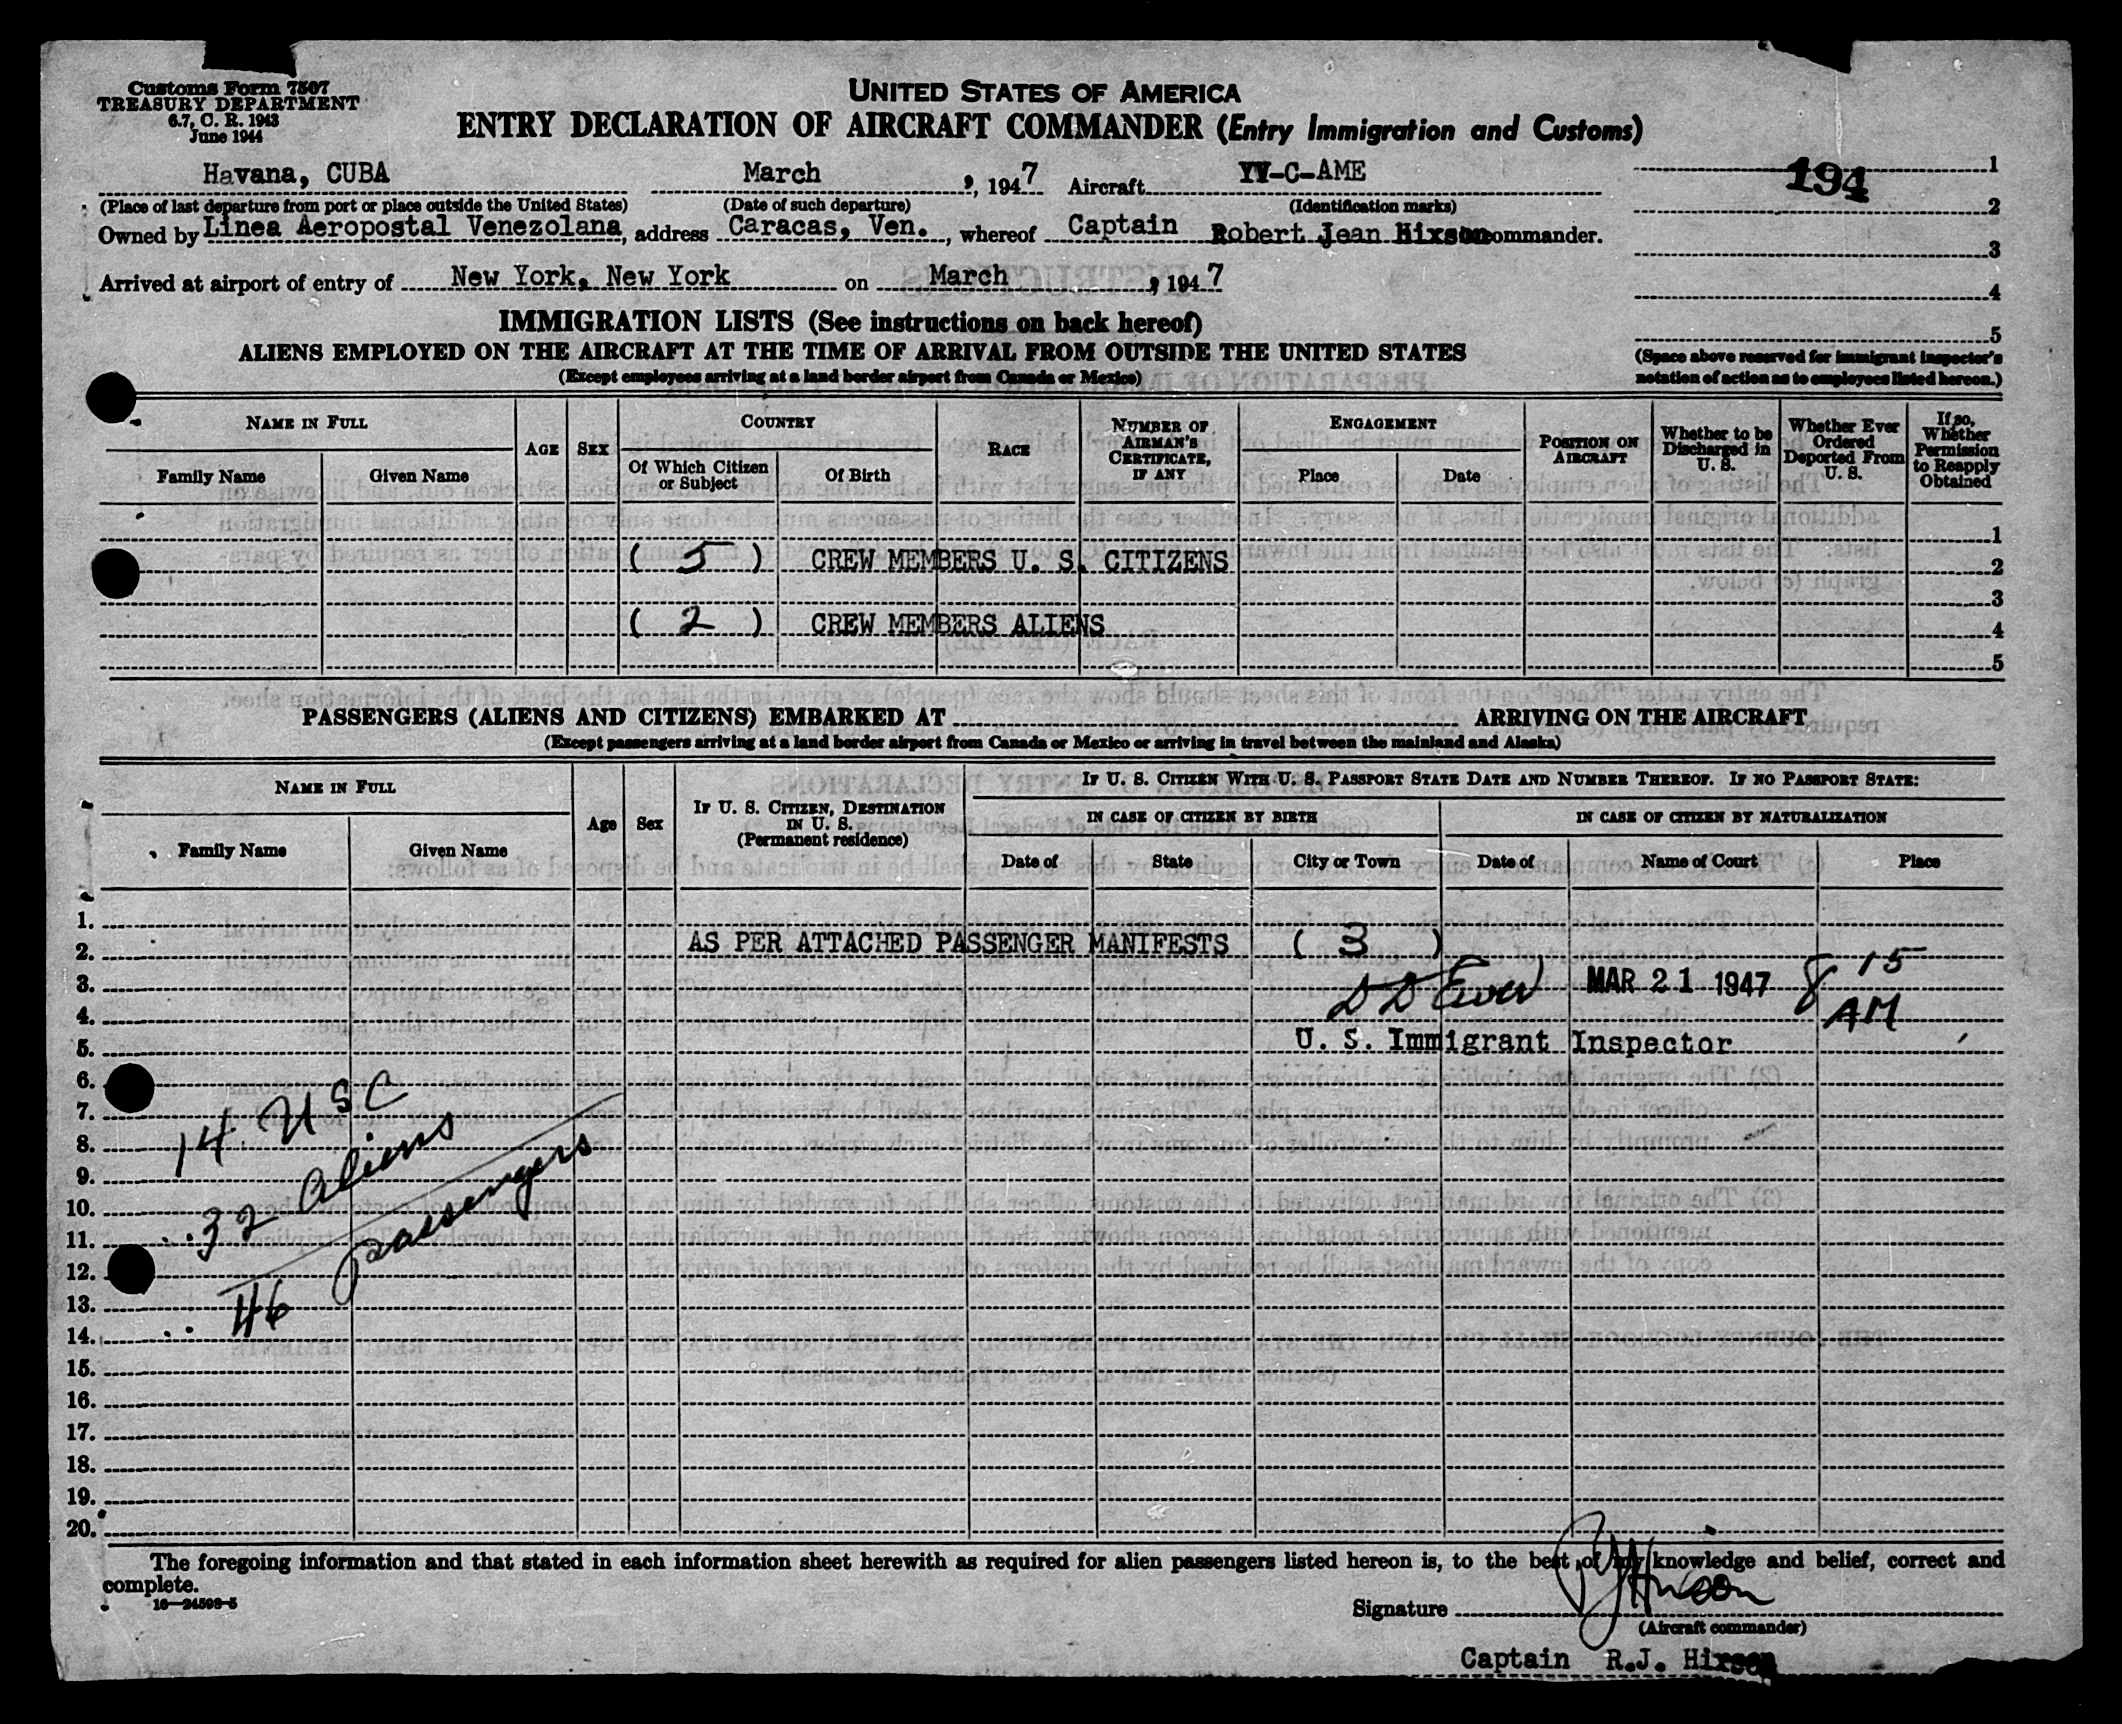 Customs Form 7507
TREASURY DEPARTMENT
6.7, C. R. 1943
June 1944
UNITED STATES OF AMERICA
ENTRY DECLARATION OF AIRCRAFT COMMANDER (Entry Immigration and Customs)
Havana, CUBA March , 1947 Aircraft YV-C-AME
(Place of last departure from port or place outside the United States) (Date of such departure) (Identification marks)
Owned by Linea Aeropostal Venezolana, address Caracas, Ven., whereof Captain Robert Jean Hixson commander.
Arrived at airport of entry of New York, New York on March , 1947
194
1
2
3
4
5
(Space above reserved for immigrant inspector's
notation of action as to employees listed hereon.)
IMMIGRATION LISTS (See instructions on back hereof)
ALIENS EMPLOYED ON THE AIRCRAFT AT THE TIME OF ARRIVAL FROM OUTSIDE THE UNITED STATES
(Except employees arriving at a land border airport from Canada or Mexico)
NAME IN FULL
Family Name Given Name
AGE SEX
COUNTRY
Of Which Citizen or Subject
Of Birth
RACE
NUMBER OF AIRMAN'S CERTIFICATE, IF ANY
ENGAGEMENT
Place Date
POSITION ON AIRCRAFT
Whether to be Discharged in U. S.
Whether Ever Ordered Deported From U. S.
If so, Whether Permission to Reapply Obtained
1
( 5 ) CREW MEMBERS U. S. CITIZENS 2
3
( 2 ) CREW MEMBERS ALIENS 4
5
PASSENGERS (ALIENS AND CITIZENS) EMBARKED AT ARRIVING ON THE AIRCRAFT
(Except passengers arriving at a land border airport from Canada or Mexico or arriving in travel between the mainland and Alaska)
NAME IN FULL
Family Name Given Name
Age Sex
IF U. S. CITIZEN, DESTINATION IN U. S.
(Permanent residence)
IF U. S. CITIZEN WITH U. S. PASSPORT STATE DATE AND NUMBER THEREOF. IF NO PASSPORT STATE:
IN CASE OF CITIZEN BY BIRTH IN CASE OF CITIZEN BY NATURALIZATION
Date of State City or Town Date of Name of Court Place
1.
2. AS PER ATTACHED PASSENGER MANIFESTS ( 3 )
3. MAR 21 1947 8 15
4. AM
5. U. S. Immigrant Inspector
6.
7. 14 USC
8.
9.
10. 32 Aliens
11.
12.
13. 46 passengers
14.
15.
16.
17.
18.
19.
20.
The foregoing information and that stated in each information sheet herewith as required for alien passengers listed hereon is, to the best of my knowledge and belief, correct and
complete.
16—24598-5
Signature R J Hixson
(Aircraft commander)
Captain R.J. Hixson